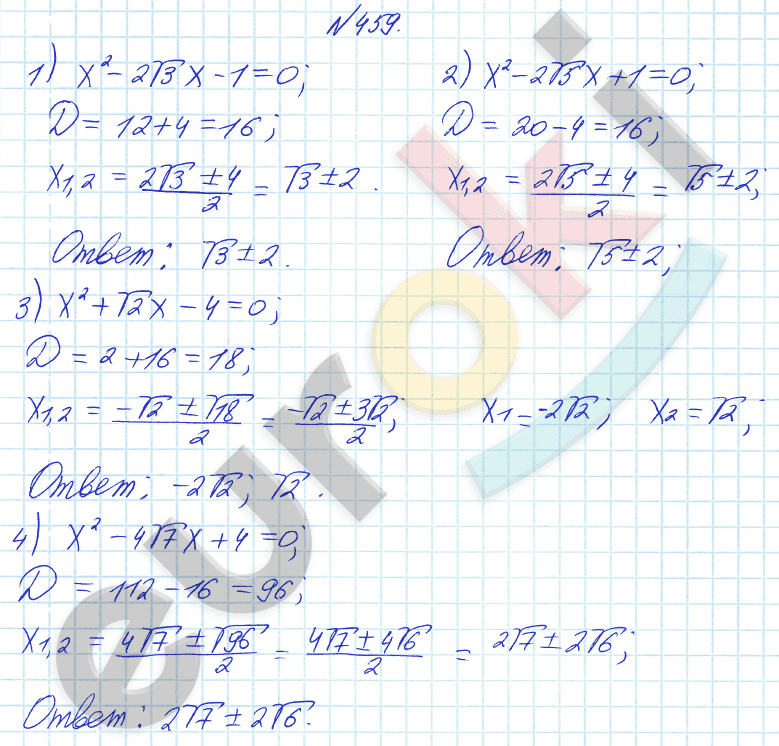 №459.
1) x² - 2√3x - 1 = 0;
D = 12 + 4 = 16;
x1,2 = (2√3 ± 4)/2 = √3 ± 2.
Ответ: √3 ± 2.
2) x² - 2√5x + 1 = 0;
D = 20 - 4 = 16;
x1,2 = (2√5 ± 4)/2 = √5 ± 2;
Ответ: √5 ± 2;
3) x² + √2x - 4 = 0;
D = 2 + 16 = 18;
x1,2 = (-√2 ± √18)/2 = (-√2 ± 3√2)/2; x1 = -2√2; x2 = √2;
Ответ: -2√2; √2.
4) x² - 4√7x + 4 = 0;
D = 112 - 16 = 96;
x1,2 = (4√7 ± √96)/2 = (4√7 ± 4√6)/2 = 2√7 ± 2√6;
Ответ: 2√7 ± 2√6.
euroki